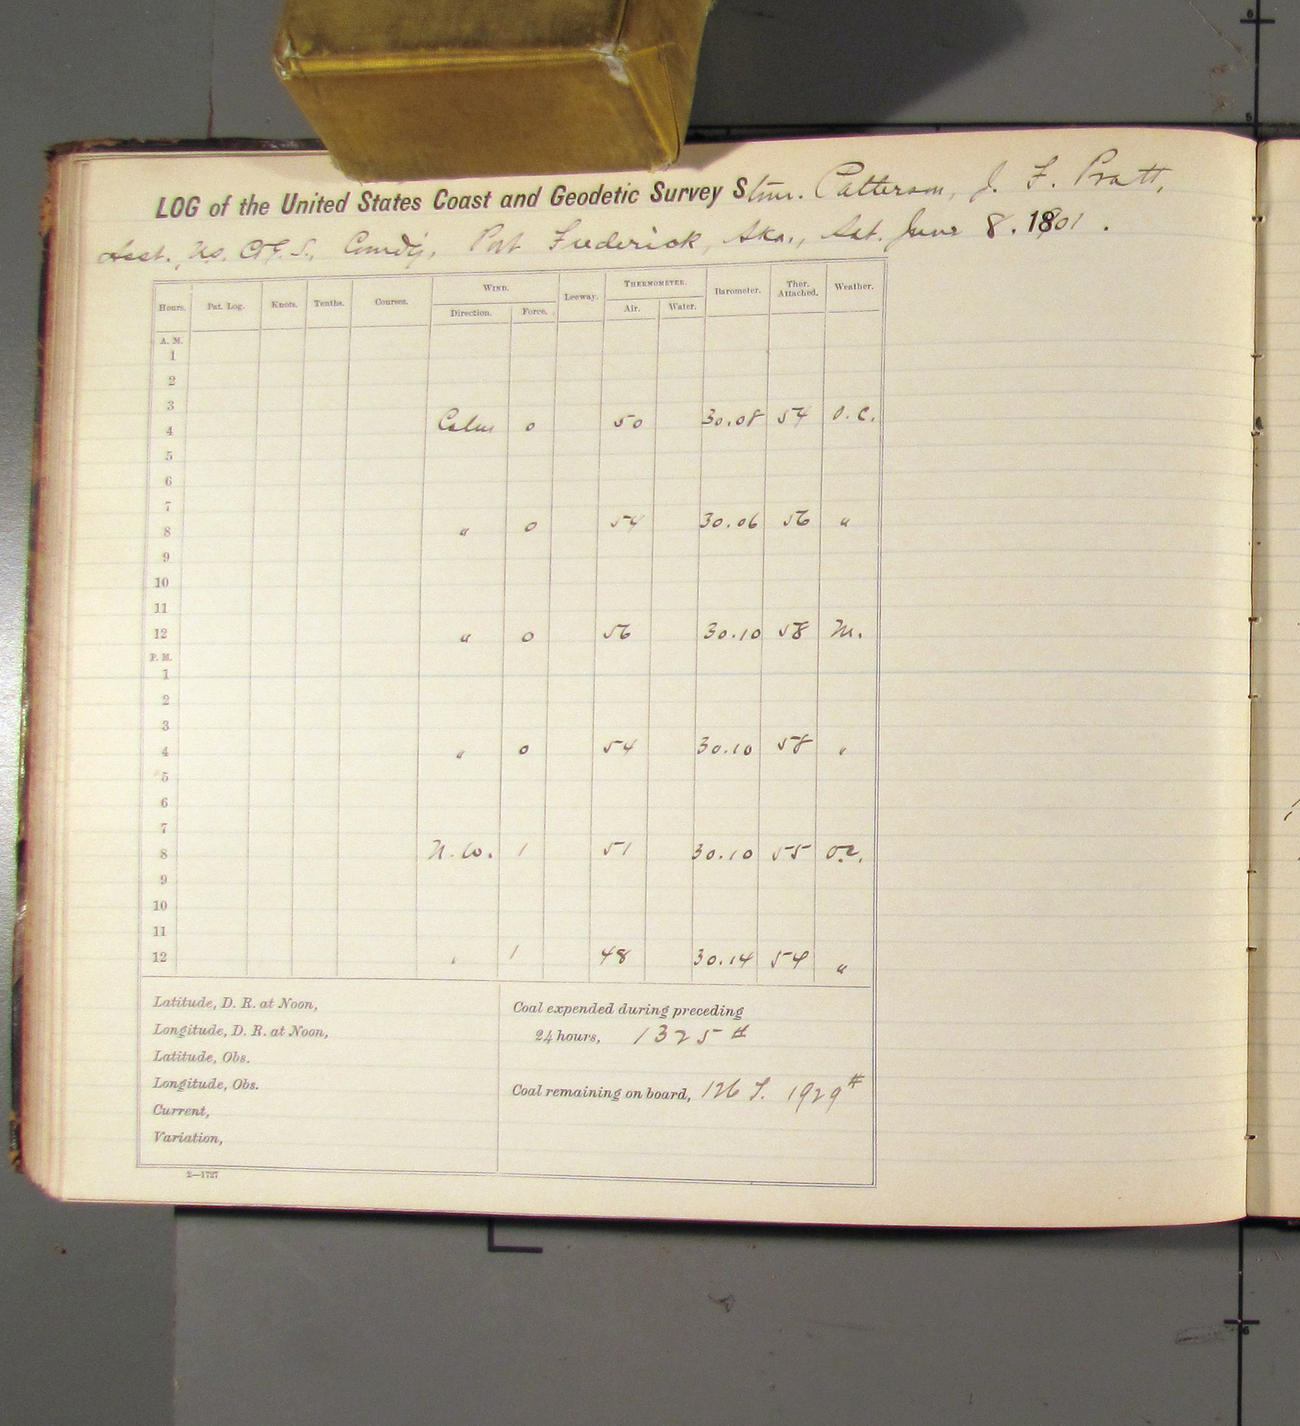 LOG of the United States Coast and Geodetic Survey Stmr. Patterson, J. F. Pratt,
Asst. U.S. C.&G.S., Comd'g, Port Frederick, Aka., Sat. June 8. 1801.
WIND. THERMOMETER.
Hours. Pat. Log. Knots. Tenths. Courses. Direction. Force. Leeway. Air. Water. Barometer. Ther. Attached. Weather.
A. M.
1
2
3
4 Calm 0 50 30.08 54 O.C.
5
6
7
8 " 0 54 30.06 56 "
9
10
11
12 " 0 56 30.10 58 M.
P. M.
1
2
3
4 " 0 54 30.10 58 "
5
6
7
8 N.W. 1 51 30.10 55 O.C.
9
10
11
12 " 1 48 30.14 54 "
Latitude, D. R. at Noon,
Longitude, D. R. at Noon,
Latitude, Obs.
Longitude, Obs.
Current,
Variation,
Coal expended during preceding
24 hours, 1325 #
Coal remaining on board, 126 T. 1929 #
2—1727